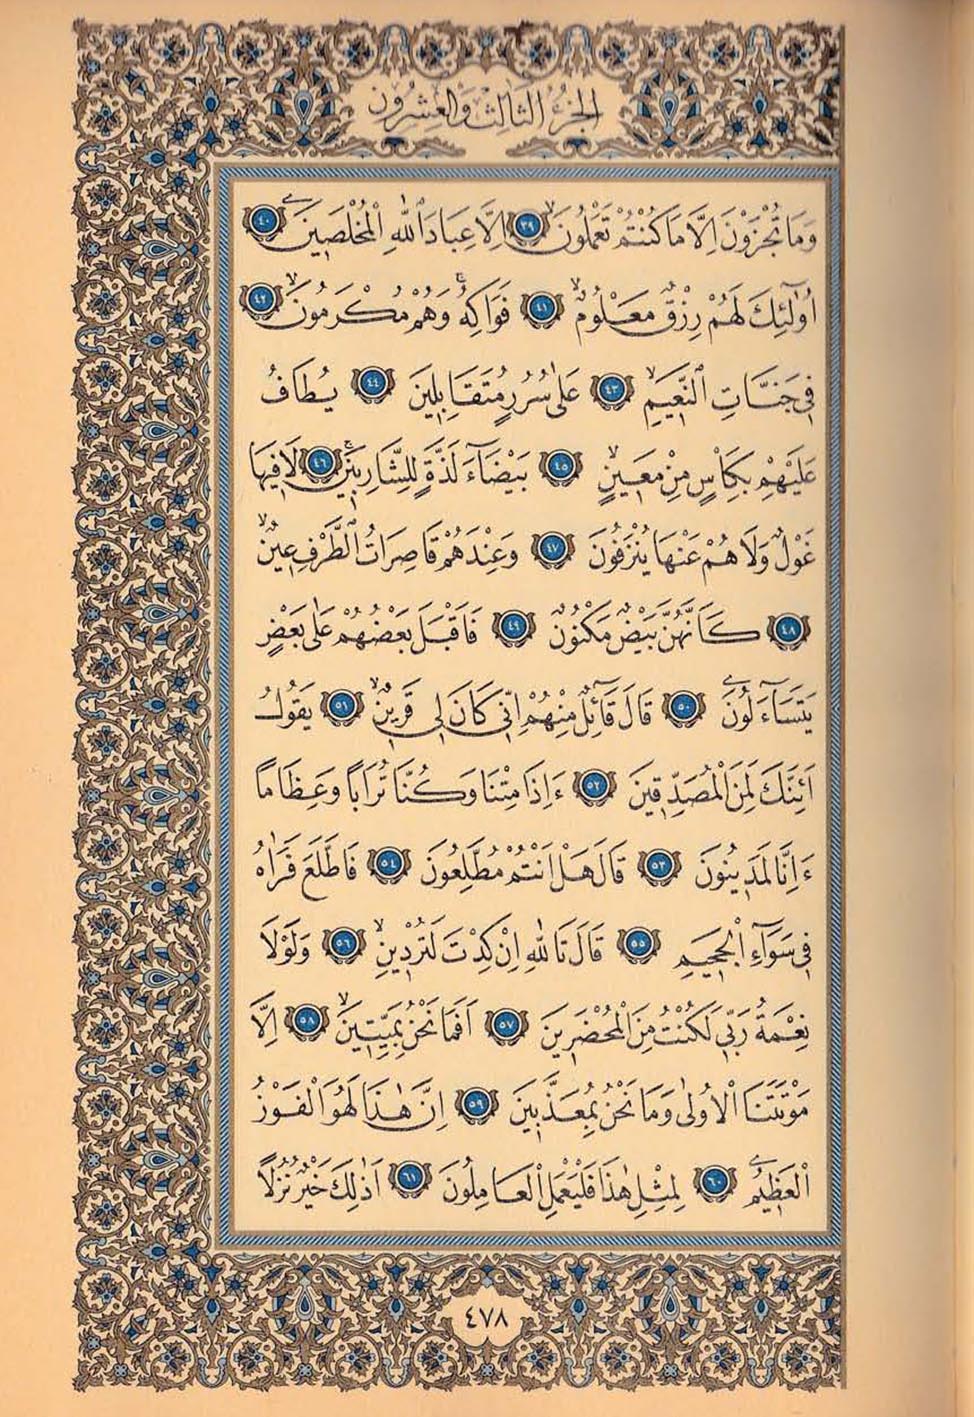 الجزء الثالث والعشرون
وَمَا تُجْزَوْنَ اِلَّا مَا كُنْتُمْ تَعْمَلُونَۙ ٣٩ اِلَّا عِبَادَ اللّٰهِ الْمُخْلَص۪ينَ ٤٠
اُولٰٓئِكَ لَهُمْ رِزْقٌ مَعْلُومٌۙ ٤١ فَوَاكِهُۚ وَهُمْ مُكْرَمُونَۙ ٤٢
ف۪ي جَنَّاتِ النَّع۪يمِۙ ٤٣ عَلٰى سُرُرٍ مُتَقَابِل۪ينَ ٤٤ يُطَافُ
عَلَيْهِمْ بِكَأْسٍ مِنْ مَع۪ينٍۙ ٤٥ بَيْضَٓاءَ لَذَّةٍ لِلشَّارِب۪ينَۚ ٤٦ لَا ف۪يهَا
غَوْلٌ وَلَا هُمْ عَنْهَا يُنْزَفُونَ ٤٧ وَعِنْدَهُمْ قَاصِرَاتُ الطَّرْفِ ع۪ينٌۙ
٤٨ كَاَنَّهُنَّ بَيْضٌ مَكْنُونٌ ٤٩ فَاَقْبَلَ بَعْضُهُمْ عَلٰى بَعْضٍ
يَتَسَٓاءَلُونَ ٥٠ قَالَ قَٓائِلٌ مِنْهُمْ اِنّ۪ي كَانَ ل۪ي قَر۪ينٌۙ ٥١ يَقُولُ
اَئِنَّكَ لَمِنَ الْمُصَدِّق۪ينَ ٥٢ ءَاِذَا مِتْنَا وَكُنَّا تُرَابًا وَعِظَامًا
ءَاِنَّا لَمَد۪ينُونَ ٥٣ قَالَ هَلْ اَنْتُمْ مُطَّلِعُونَ ٥٤ فَاطَّلَعَ فَرَاٰهُ
ف۪ي سَوَٓاءِ الْجَح۪يمِ ٥٥ قَالَ تَاللّٰهِ اِنْ كِدْتَ لَتُرْد۪ينِۙ ٥٦ وَلَوْلَا
نِعْمَةُ رَبّ۪ي لَكُنْتُ مِنَ الْمُحْضَر۪ينَ ٥٧ اَفَمَا نَحْنُ بِمَيِّت۪ينَۙ ٥٨ اِلَّا
مَوْتَتَنَا الْاُو۫لٰى وَمَا نَحْنُ بِمُعَذَّب۪ينَ ٥٩ اِنَّ هٰذَا لَهُوَ الْفَوْزُ
الْعَظ۪يمُ ٦٠ لِمِثْلِ هٰذَا فَلْيَعْمَلِ الْعَامِلُونَ ٦١ اَذٰلِكَ خَيْرٌ نُزُلًا
٤٧٨